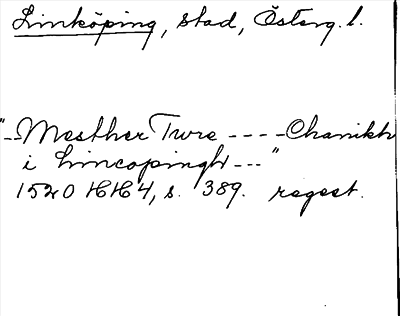 Linköping, stad, Österg. l.
"--Mesther Twre ----Chanikh
i Lincopingh ---"
1520 HH 4, s. 389. regest.